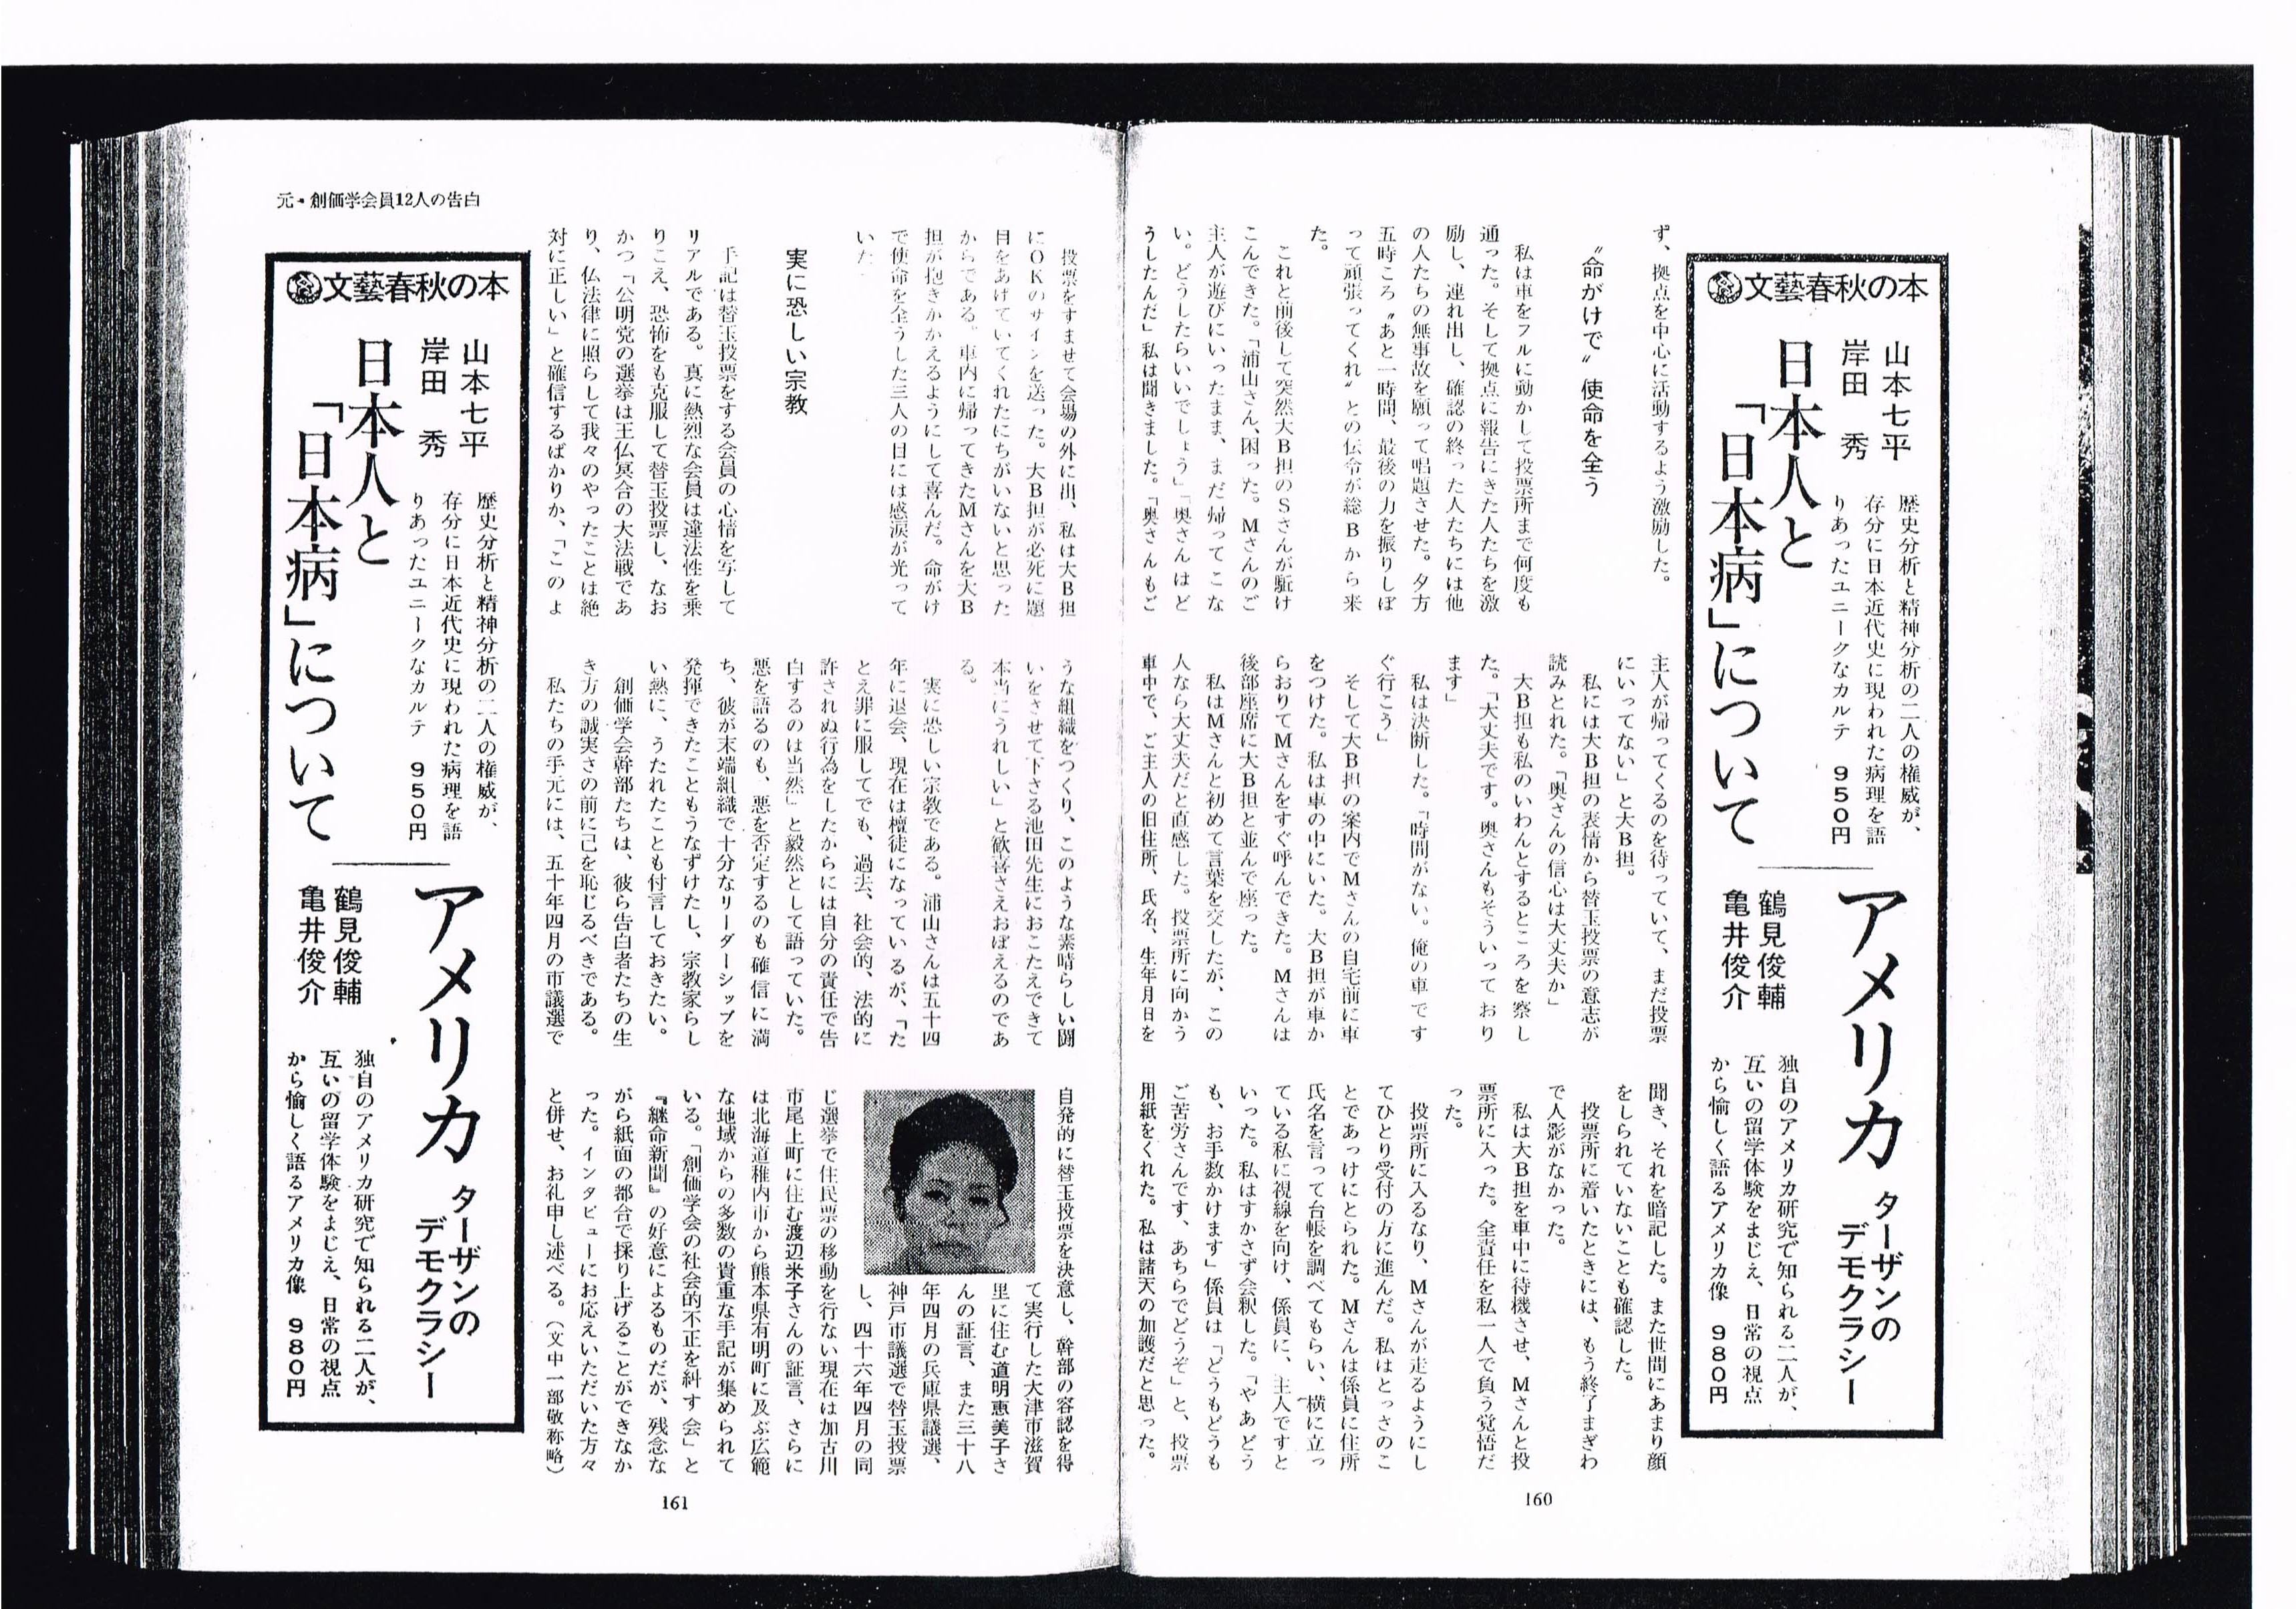 文藝春秋の本
山本七平
岸田 秀
日本人と
「日本病」について
歴史分析と精神分析の二人の権威が、
存分に日本近代史に現われた病理を語
りあったユニークなカルテ 950円
アメリカ
ターザンの
デモクラシー
鶴見俊輔
亀井俊介
独自のアメリカ研究で知られる二人が、
互いの留学体験をまじえ、日常の視点
から愉しく語るアメリカ像 980円
ず、拠点を中心に活動するよう激励した。
〝命がけで〟使命を全う
私は車をフルに動かして投票所まで何度も
通った。そして拠点に報告にきた人たちを激
励し、連れ出し、確認の終った人たちには他
の人たちの無事故を願って唱題させた。夕方
五時ころ〝あと一時間、最後の力を振りしぼ
って頑張ってくれ〟との伝令が総Bから来
た。
これと前後して突然大B担のSさんが駈け
こんできた。「浦山さん、困った。Mさんのご
主人が遊びにいったまま、まだ帰ってこな
い。どうしたらいいでしょう」「奥さんはど
うしたんだ」私は聞きました。「奥さんもご
主人が帰ってくるのを待っていて、まだ投票
にいってない」と大B担。
私には大B担の表情から替玉投票の意志が
読みとれた。「奥さんの信心は大丈夫か」
大B担も私のいわんとするところを察し
た。「大丈夫です。奥さんもそういっており
ます」
私は決断した。「時間がない。俺の車です
ぐ行こう」
そして大B担の案内でMさんの自宅前に車
をつけた。私は車の中にいた。大B担が車か
らおりてMさんをすぐ呼んできた。Mさんは
後部座席に大B担と並んで座った。
私はMさんと初めて言葉を交したが、この
人なら大丈夫だと直感した。投票所に向かう
車中で、ご主人の旧住所、氏名、生年月日を
聞き、それを暗記した。また世間にあまり顔
をしられていないことも確認した。
投票所に着いたときには、もう終了まぎわ
で人影がなかった。
私は大B担を車中に待機させ、Mさんと投
票所に入った。全責任を私一人で負う覚悟だ
った。
投票所に入るなり、Mさんが走るようにし
てひとり受付の方に進んだ。私はとっさのこ
とであっけにとられた。Mさんは係員に住所
氏名を言って台帳を調べてもらい、横に立っ
ている私に視線を向け、係員に、「主人ですと
いった。私はすかさず会釈した。「やあどう
も、お手数かけます」係員は「どうもどうも
ご苦労さんです、あちらでどうぞ」と、投票
用紙をくれた。私は諸天の加護だと思った。
160
元・創価学会員12人の告白
投票をすませて会場の外に出、私は大B担
にOKのサインを送った。大B担が必死に題
目をあげていてくれたにちがいないと思った
からである。車内に帰ってきたMさんを大B
担が抱きかかえるようにして喜んだ。命がけ
で使命を全うした三人の目には感涙が光って
いた
実に恐しい宗教
手記は替玉投票をする会員の心情を写して
リアルである。真に熱烈な会員は違法性を乗
りこえ、恐怖をも克服して替玉投票し、なお
かつ「公明党の選挙は王仏冥合の大法戦であ
り、仏法律に照らして我々のやったことは絶
対に正しい」と確信するばかりか、「このよ
うな組織をつくり、このような素晴らしい闘
いをさせて下さる池田先生におこたえできて
本当にうれしい」と歓喜さえおぼえるのであ
る。
実に恐しい宗教である。浦山さんは五十四
年に退会、現在は檀徒になっているが、「た
とえ罪に服してでも、過去、社会的、法的に
許されぬ行為をしたからには自分の責任で告
白するのは当然」と毅然として語っていた。
悪を語るのも、悪を否定するのも確信に満
ち、彼が末端組織で十分なリーダーシップを
発揮できたこともうなずけたし、宗教家らし
い熱に、うたれたことも付言しておきたい。
創価学会幹部たちは、彼ら告白者たちの生
き方の誠実さの前に己を恥じるべきである。
私たちの手元には、五十年四月の市議選で
自発的に替玉投票を決意し、幹部の容認を得
て実行した大津市滋賀
里に住む道明恵美子さ
んの証言、また三十八
年四月の兵庫県議選、
神戸市議選で替玉投票
し、四十六年四月の同
じ選挙で住民票の移動を行ない現在は加古川
市尾上町に住む渡辺米子さんの証言、さらに
は北海道稚内市から熊本県有明町に及ぶ広範
な地域からの多数の貴重な手記が集められて
いる。「創価学会の社会的不正を糾す会」と
『継命新聞』の好意によるものだが、残念な
がら紙面の都合で採り上げることができなか
った。インタビューにお応えいただいた方々
と併せ、お礼申し述べる。（文中一部敬称略）
161
文藝春秋の本
山本七平
岸田 秀
日本人と
「日本病」について
歴史分析と精神分析の二人の権威が、
存分に日本近代史に現われた病理を語
りあったユニークなカルテ 950円
アメリカ
ターザンの
デモクラシー
鶴見俊輔
亀井俊介
独自のアメリカ研究で知られる二人が、
互いの留学体験をまじえ、日常の視点
から愉しく語るアメリカ像 980円